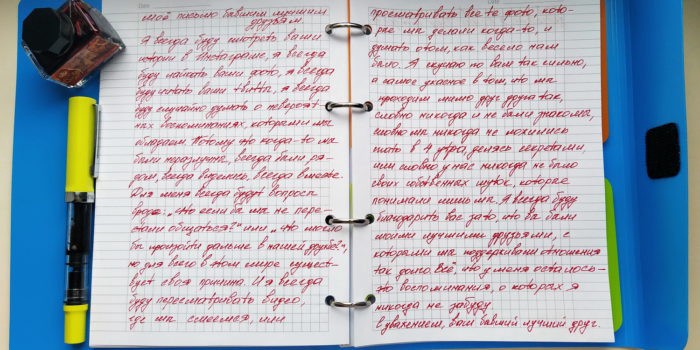 Моё письмо бывшим лучшим
друзьям
Я всегда буду смотреть ваши
истории в Инстаграме, я всегда
буду лайкать ваши фото, я всегда
буду читать ваши твитты, я всегда
буду случайно думать о невероят-
ных воспоминаниях, которыми мы
обладаем. Потому что когда-то мы
были неразлучны, всегда были ря-
дом, всегда виделись, всегда вместе.
Для меня всегда будут вопросы
вроде: „Что если бы мы не пере-
стали общаться?" или „Что могло
бы произойти дальше в нашей дружбе",
но для всего в этом мире сущест-
вует своя причина. И я всегда
буду пересматривать видео,
где мы смеёмся, или
просматривать все те фото, кото-
рые мы делали когда-то, и
думать о том, как весело нам
было. Я скучаю по вам так сильно,
а самое ужасное в том, что мы
проходим мимо друг друга так,
словно никогда и не были знакомы,
словно мы никогда не ложились
спать в 4 утра, делясь секретами,
или словно у нас никогда не было
своих собственных шуток, которые
понимали лишь мы. Я всегда буду
благодарить вас за то, что вы были
моими лучшими друзьями, с
которыми мы поддерживали отношения
так долго. Всё, что у меня осталось-
это воспоминания, о которых я
никогда не забуду.
С уважением, ваш бывший лучший друг.